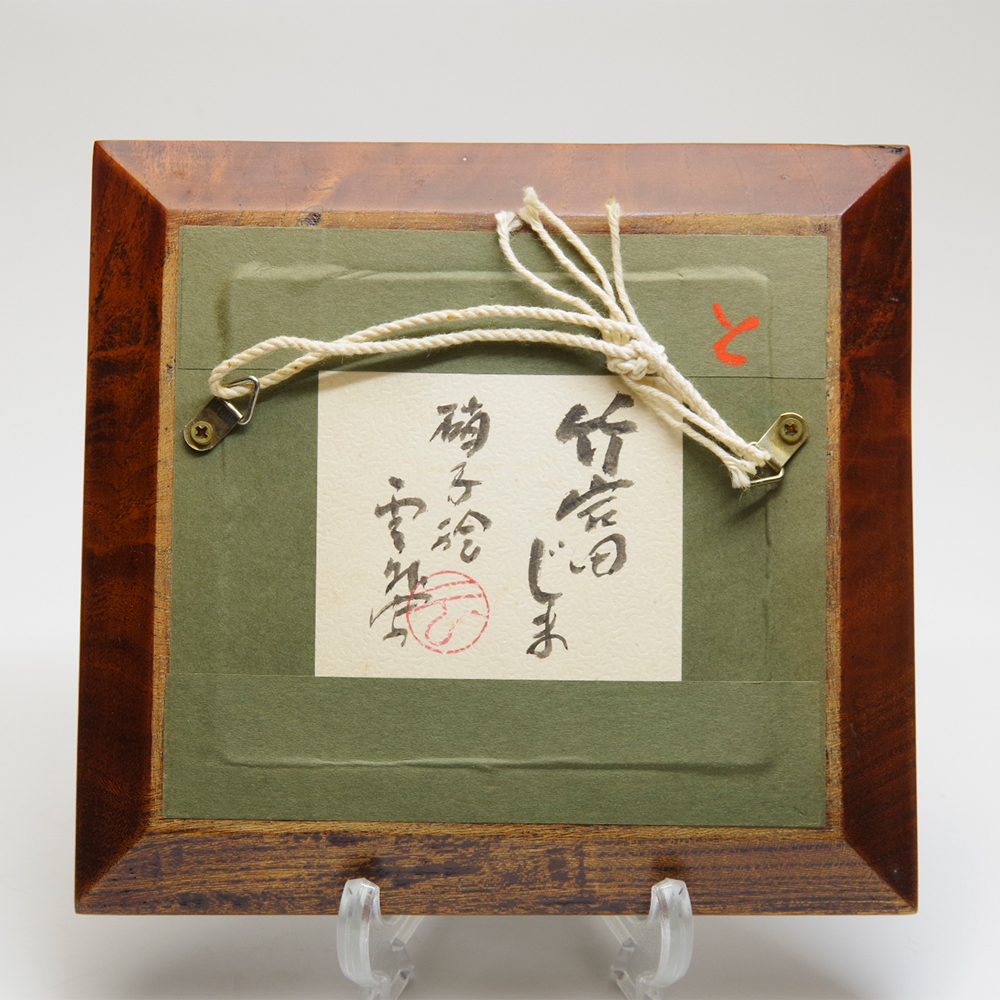 と
竹富じま
硝子絵
雲